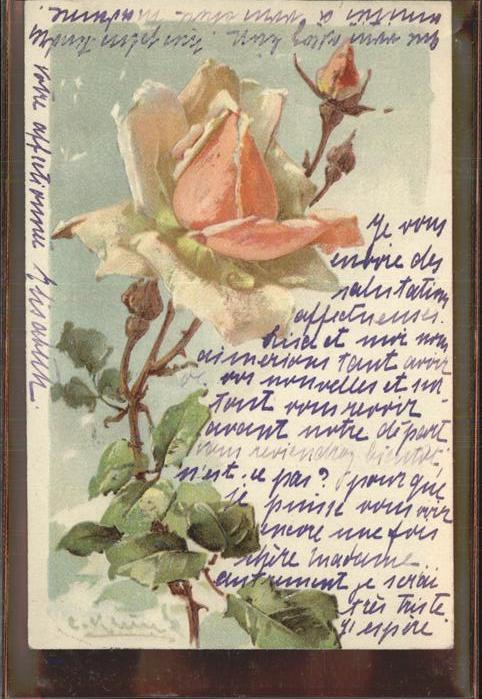 Je vous
envoie des
salutations
affectueuses.
Lisa et moi nous
aimerions tant avoir
de vos nouvelles et sur-
tout vous revoir
avant notre départ
vous reviendrez bientôt
n'est-ce pas? pour que
je puisse vous voir
encore une fois
chère Madame
autrement je serai
très triste.
J'espère
que vous
amitié à
madame
votre affectionnée
C. Klein